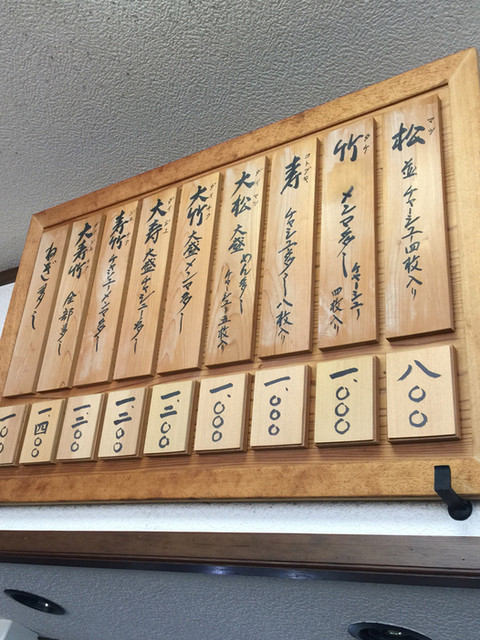 松 マツ
並 チャーシュー四枚入り
竹 タケ
メンマ多し
チャーシュー四枚入り
寿 コトブキ
チャーシュー多し 八枚入り
大松 ダイマツ
大盛 めん多し
チャーシュー五枚入り
大竹 ダイタケ
大盛 メンマ多し
大寿
大盛 チャーシュー多し
寿竹
チャーシューメンマ多し
大寿竹
全部多し
ねぎ多し
八〇〇
一、〇〇〇
一、〇〇〇
一、〇〇〇
一、二〇〇
一、二〇〇
一、二〇〇
一、四〇〇
一〇〇